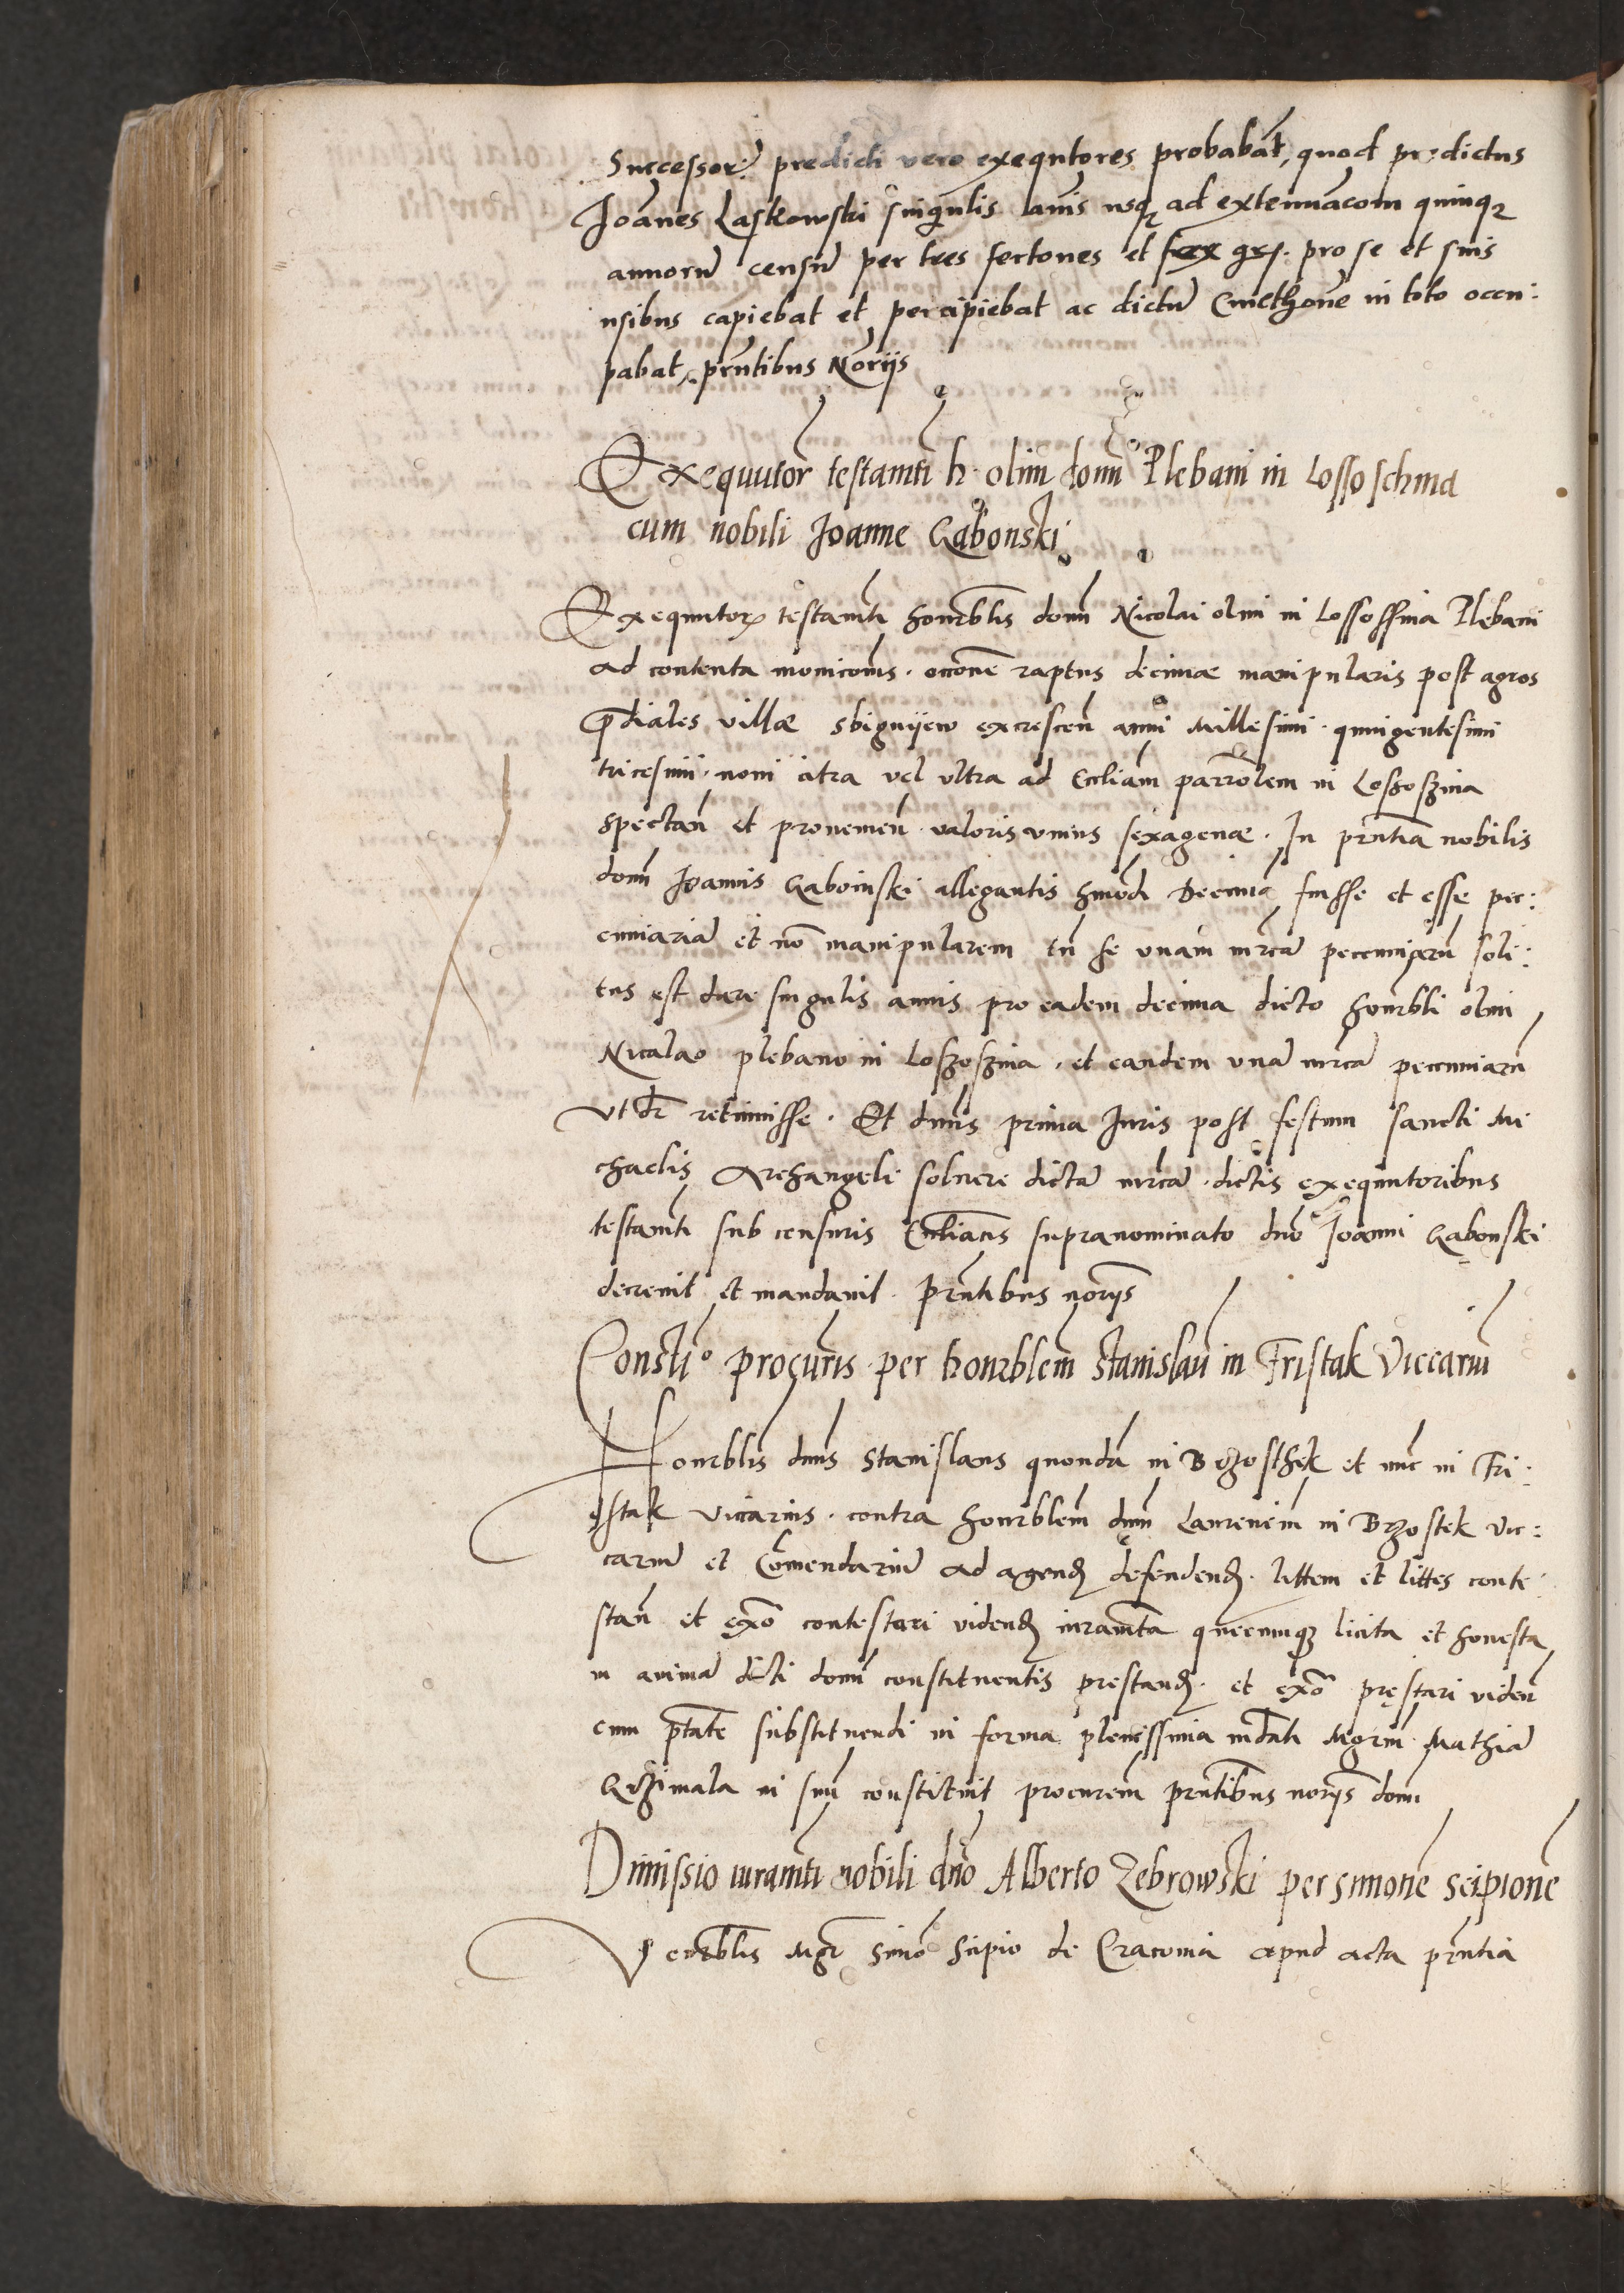 Successor: predicti vero exequtores probabāt, quod predictus
Joānes Laskowski singulis annis usq; ad extenuacom quinq;
annorū censū per tres fertones et sex grs. pro se et suis
usibus capiebat et percipiebat ac dictū Cmethonē in toto occu:
pabat, pn̄tibus Nōriis
Exequutor̄ testamn̄ti h. olim domn̄i Plebani in Lossoschina
cum nobili Joanne Gabonski
Exequutor; testamn̄ti honrb̄lis domn̄i Nicolai olim in Lossossina Plebani
ad contenta monicoīns. occonē raptus decimae manipularis post agros
p̄diales villae Sbignijew excrescen̄ anni Millesimi quingentesimi
tricesimi noni citra vel ultra ad Eccliam parrōlem in Loszoszina
spectan̄ et provenien̄ valoris unius sexagenae. In pn̄tia nobilis
domn̄i Joannis Gaboinski allegantis hmōdi Decimā fuisse et esse pec:
cuniariā et nō manipularem tn̄ se unam mrcā peccuniarū soli:
tus est dare singulis annis pro eadem decima dicto honrbli olim
Nicalao plebano in Loszoszina. et eandem unā mrcā peccuniarū
ut dr̄ retinuisse. Et dnūs prima Juris post festum sancti Mi
chaelis Archangeli solvere dictā mrcā dictis exequutoribus
testamn̄ti sub censuris Eccliacis supranominato dnō Joanni Gabonski
decrevit et mandavit. Pn̄tibus noriis
Consti° procurīs per honrblem Stanislaū in Fristak Viccariū
Honrblis dnūs Stanislaus quondā in Brzosthek et nūc in Fri:
stak vicarius. contra honrblem dnūm Laurenciūm in Brzostek vic:
cariū et Comendariū ad agend̄ defendend̄. littem et littes conte
stan̄ et exō contestari vidend̄ iuramn̄ta quecunq; licita et honesta
in animā dicti domn̄i constituentis prestand̄. et exō pręstari viden̄
cum ptāte substituendi in forma plenissima mdāti Mgrūm Mathiā
Grzimala in suū constituit procurem pn̄tibus noriis domn̄
Dimissio iuramn̄ti nobili dnō Alberto Zebrowski per simonē scipionē
Venrblis Mgr̄ Simō Scipio de Cracovia apud acta pn̄tia